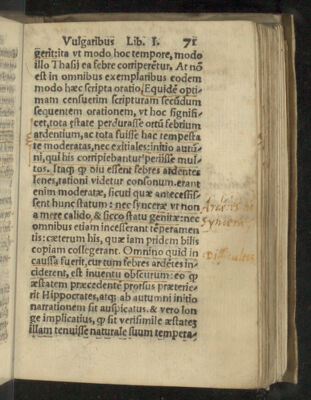 Vulgaribus Lib. I. 71
gerit: ita vt modo hoc tempore, modo
illo Thasij ea febre corriperẽtur. At nõ
est in omnibus exemplaribus eodem
modo hæc scripta oratio. Equidẽ opti-
mam censuerim scripturam secũdum
sequentem orationem, vt hoc signifi-
cet, tota estate perdurasse ortũ febrium
ardentium, ac tota fuisse hac tempesta
te moderatas, nec exitiales: initio autũ-
ni, qui his corripiebantur periisse mul-
tos. Itaq; diu essent febres ardentes
lenes, rationi videtur consonum. erant
enim moderatæ, sicuti quæ antecessis-
sent hunc statum: nec synceræ vt non
a mere calido, & sicco statu genitæ: nec
omnibus etiam incesserant tẽperamen
tis: cæterum his, quæ iam pridem bilis
copiam collegerant. Omnino quid in
caussa fuerit, cur tum febres ardẽtes in-
ciderent, est inuentu obscurum: eo ꝙ
æstatem præcedentẽ prorsus præterie-
rit Hippocrates, atq; ab autumni initio
narrationem sit auspicatus. & vero lon
ge implicatius, ꝙ sit verisimile æstatẽ
illam tenuisse naturale suum tempera-
Syncera